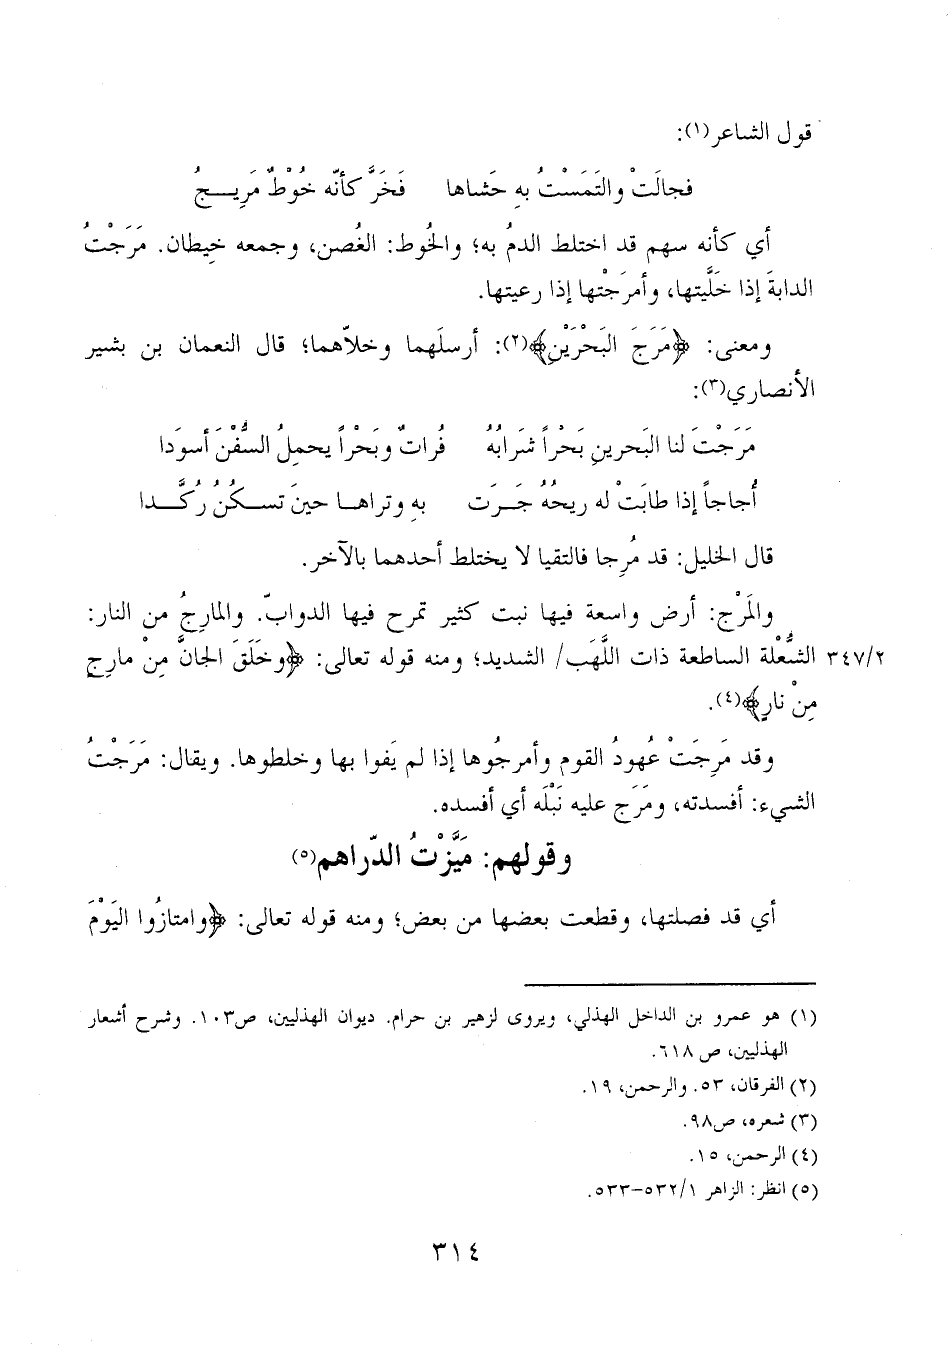 قول الشاعر(١):
فجالَتْ والتَمَسْتُ بهِ حَشاها فَخَرَّ كأنّه خُوْطٌ مَريـــجُ
أي كأنه سهم قد اختلط الدمُ به؛ والخُوط: الغُصن، وجمعه خيطان. مَرَجْتُ
الدابةَ إذا خَلَّيتها، وأمرَجْتها إذا رعيتها.
ومعنى: ﴿مَرَجَ البَحْرَيْنِ﴾(٢): أرسلَهما وخلاّهما؛ قال النعمان بن بشير
الأنصاري(٣):
مَرَجْتَ لنا البَحرينِ بَحْراً شَرابُهُ فُراتٌ وبَحْراً يحمِلُ السُّفْنَ أسوَدا
أُجاجاً إذا طابَتْ له ريحُهُ جَــرَت بهِ وتراهــا حينَ تســكُنُ رُكَّــدا
قال الخليل: قد مُرِجا فالتقيا لا يختلط أحدهما بالآخر.
والمَرْج: أرض واسعة فيها نبت كثير تمرح فيها الدوابّ. والمارجُ من النار:
٣٤٧/٢ الشُّعْلة الساطعة ذات اللَّهَب/ الشديد؛ ومنه قوله تعالى: ﴿وخَلَقَ الجانَّ مِنْ مارِجٍ
مِنْ نارٍ﴾(٤).
وقد مَرِجَتْ عُهودُ القوم وأمرجُوها إذا لم يَفوا بها وخلطوها. ويقال: مَرَجْتُ
الشيء: أفسدته، ومَرَج عليه نَبْلَه أي أفسده.
وقولهم: مَيَّزْتُ الدّراهم(٥)
أي قد فصلتها، وقطعت بعضها من بعض؛ ومنه قوله تعالى: ﴿وامتازُوا اليَوْمَ
(١) هو عمرو بن الداخل الهذلي، ويروى لزهير بن حرام. ديوان الهذليين، ص١٠٣. وشرح أشعار
الهذليين، ص ٦١٨.
(٢) الفرقان، ٥٣. والرحمن، ١٩.
(٣) شعره، ص٩٨.
(٤) الرحمن، ١٥.
(٥) انظر: الزاهر ٥٣٢/١-٥٣٣.
٣١٤